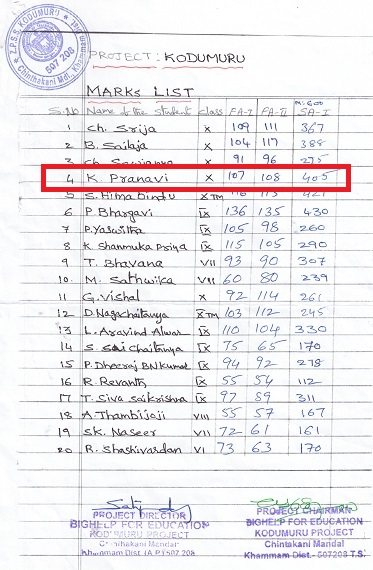 Z.P.S.S. KODUMURU
507 208
Chinthakani Mdl., Khammam
PROJECT: KODUMURU
MARKS LIST
M:600
S.No Name of the student class FA-I FA-II SA-I
1 Ch. Srija X 109 111 367
2 B. Sailaja X 104 117 388
3 Ch. Sowjanya X 91 96 275
4 K. Pranavi X 107 108 405
5 S. Hima bindu X TM 116 113 421
6 P. Bhargavi IX 136 135 430
7 P. Yaswitha IX 105 98 260
8 K. Shanmuka Priya IX 115 105 290
9 T. Bhavana VII 93 90 307
10. M. Sathwika VII 60 80 239
11 G. Vishal X 92 114 261
12 D. Nagachaitanya X TM 103 112 245
13 L. Aravind IX 110 104 330
14 S. Sai Chaitanya IX 75 65 170
15 P. Dheeraj B.N Kumar IX 94 92 278
16 R. Revanth IX 55 54 112
17 T. Siva Saikrishna IX 97 89 311
18 A. Thambiloji VIII 55 57 167
19 SK. Naseer VI 72 61 161
20 R. Shashivardan VI 73 63 170
PROJECT DIRECTOR
BIGHELP FOR EDUCATION
KODUMURU PROJECT
Chintakani Mandal
Khammam Dist. (A.P.) 507 208
PROJECT CHAIRMAN
BIGHELP FOR EDUCATION
KODUMURU PROJECT
Chintakani Mandal
Khammam Dist.- 507208 T.S.